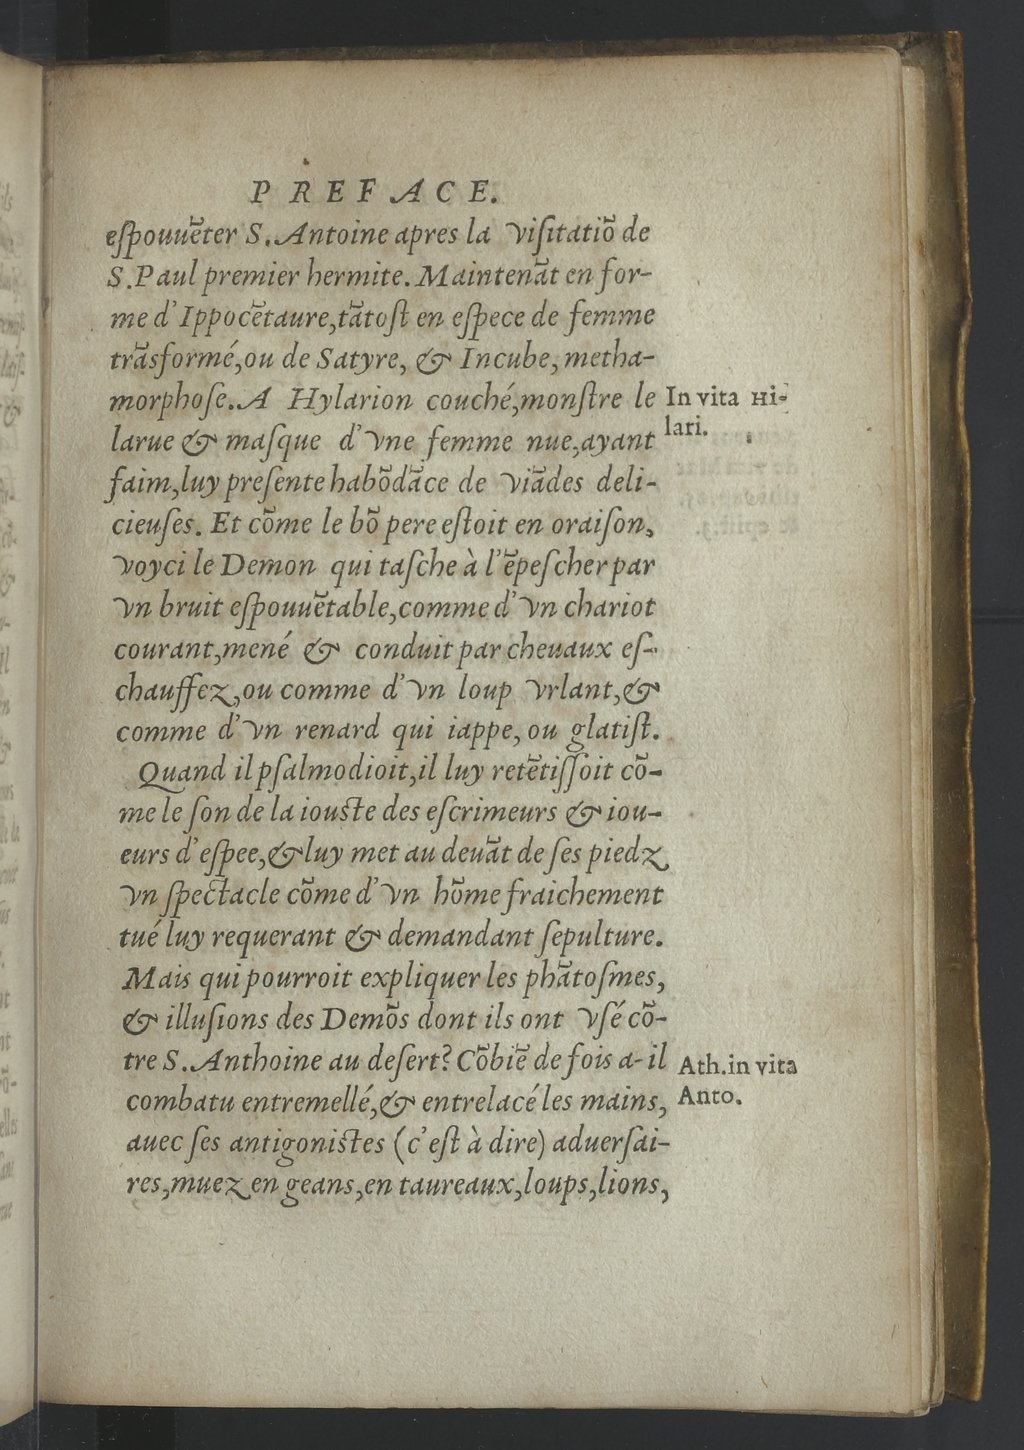 PREFACE.
eſpouuẽter S. Antoine apres la viſitatiõ de
S. Paul premier hermite. Maintenãt en for-
me d'Ippocẽtaure, tãtoſt en eſpece de femme
trãsformé, ou de Satyre, & Incube, metha-
morphoſe. A Hylarion couché, monſtre le
In vita Hi-
larue & maſque d'vne femme nue, ayant
lari.
faim, luy preſente habõdãce de viãdes deli-
cieuſes. Et cõme le bõ pere eſtoit en oraiſon,
voyci le Demon qui taſche à l'ẽpeſcher par
vn bruit eſpouuẽtable, comme d'vn chariot
courant, mené & conduit par cheuaux eſ-
chauffez, ou comme d'vn loup vrlant, &
comme d'vn renard qui iappe, ou glatiſt.
Quand il pſalmodioit, il luy retẽtiſſoit cõ-
me le ſon de la iouſte des eſcrimeurs & iou-
eurs d'eſpee, & luy met au deuãt de ſes piedz
vn ſpectacle cõme d'vn hõme fraichement
tué luy requerant & demandant ſepulture.
Mais qui pourroit expliquer les phãtoſmes,
& illuſions des Demõs dont ils ont vſé cõ-
tre S. Anthoine au deſert? Cõbiẽ de fois a-il
Ath. in vita
combatu entremellé, & entrelacé les mains,
Anto.
auec ſes antigoniſtes (c'eſt à dire) aduerſai-
res, muez en geans, en taureaux, loups, lions,